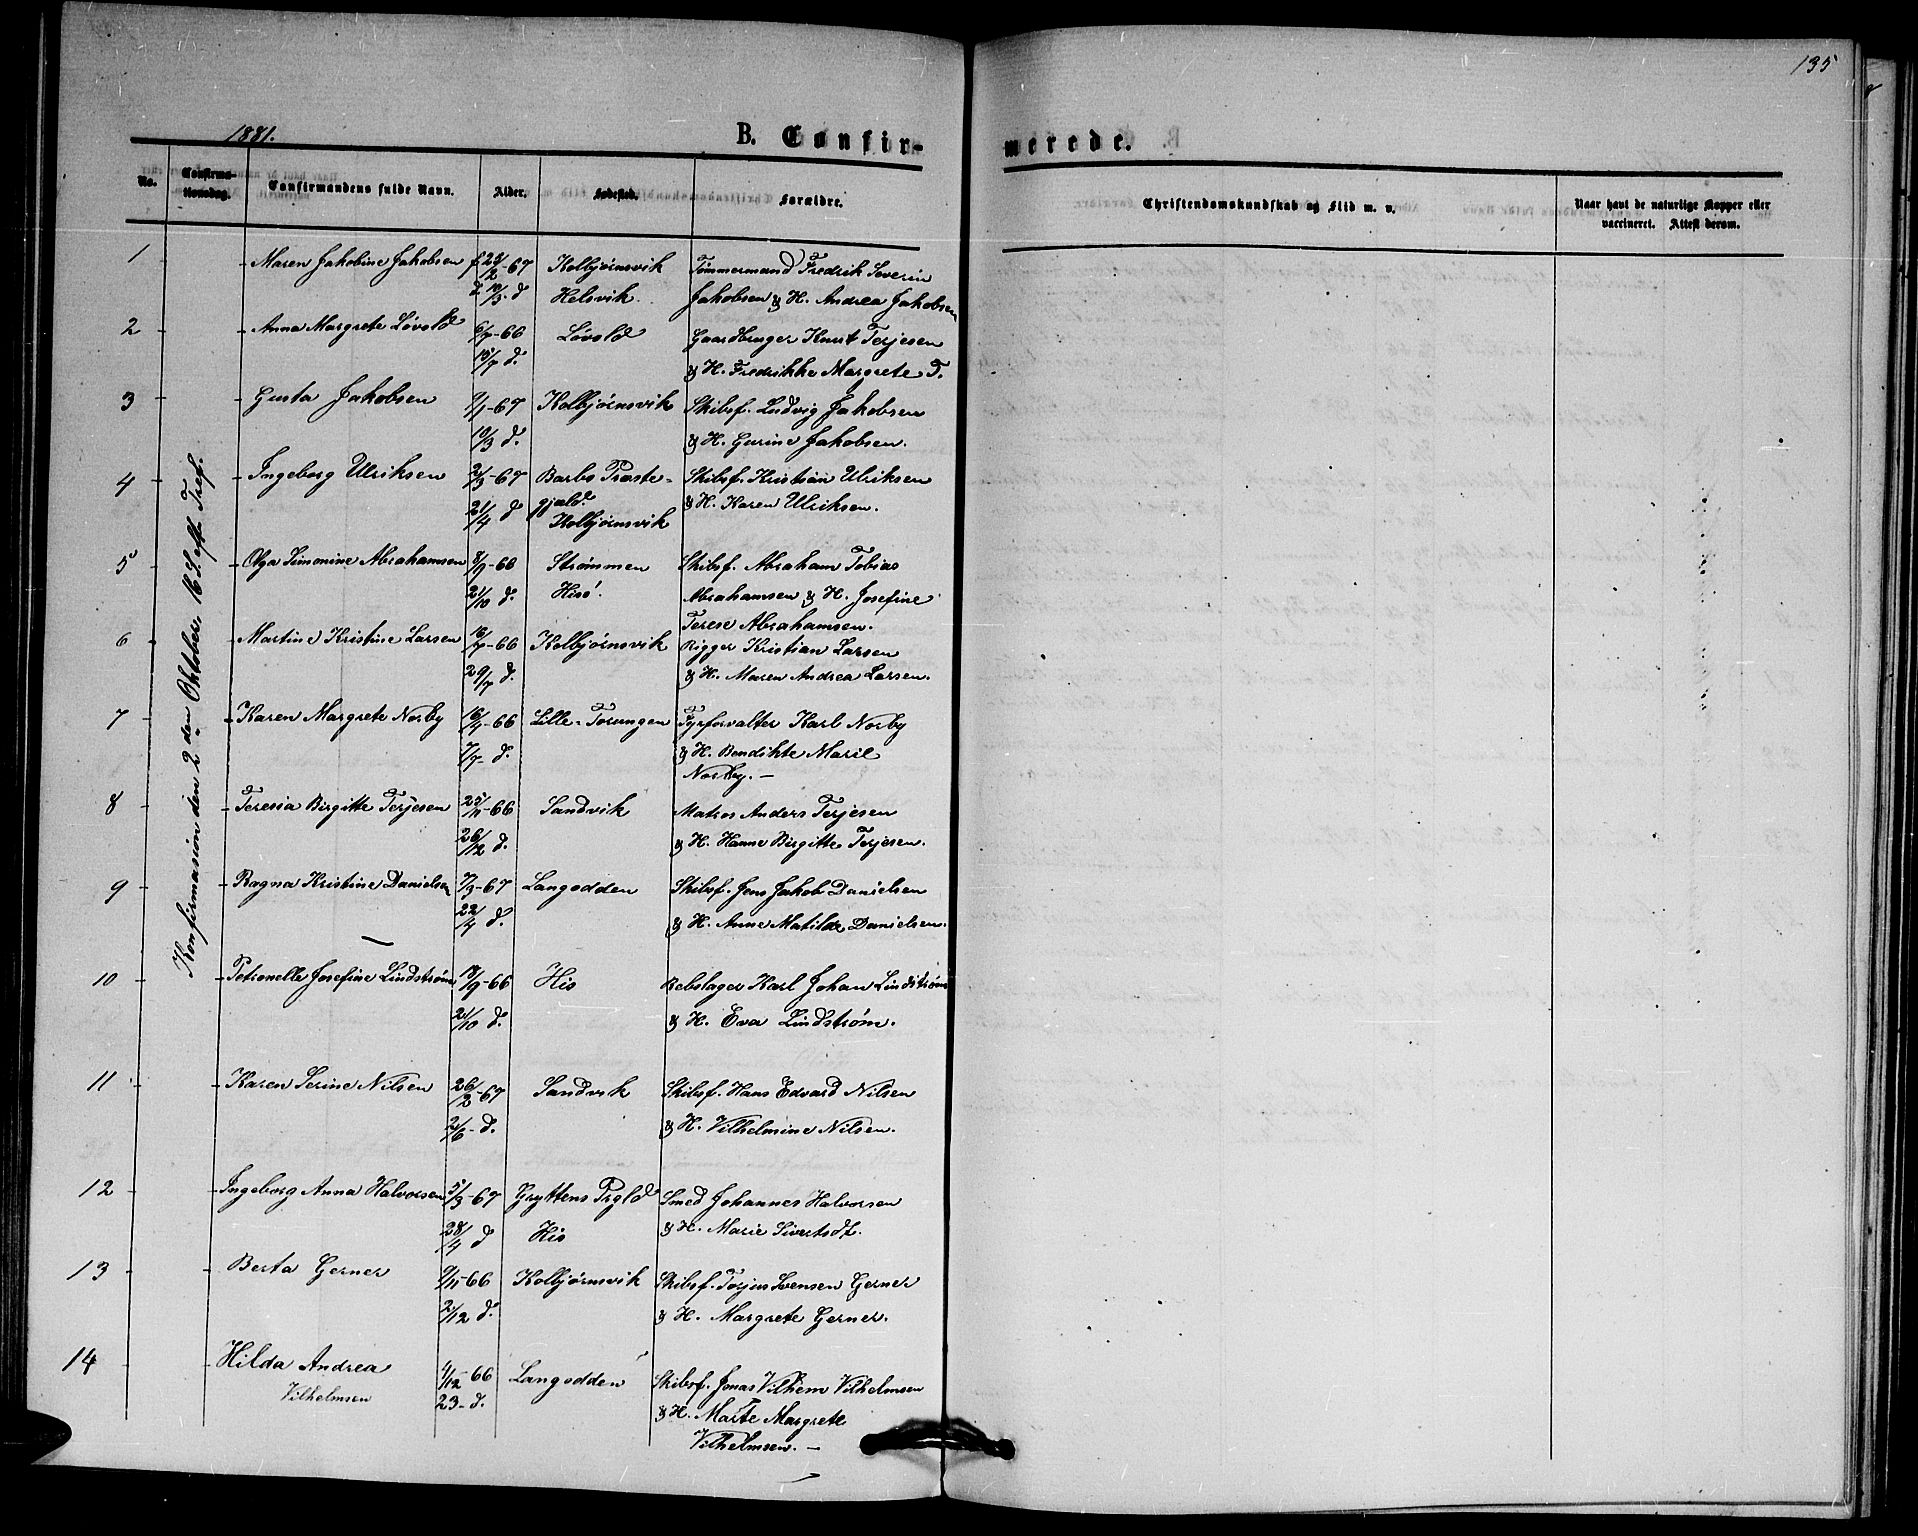 135
1881.
B. Confir-
merede.
No.
Confirma-
tionsdag.
Confirmandens fulde Navn.
Alder.
Fødested.
Forældre.
Christendomskundskab og Flid m. v.
Naar havt de naturlige Kopper eller
vaccineret. Attest derom.
Konfirmasion den 2den Oktober, 16 S. eft. Tref.
1 - Maren Jakobine Jakobsen f 25/2-67 Kolbjørnsvik Tømmermand Fredrik Severin
D 10/3 d Helsvik. Jakobsen & H. Andrea Jakobsen
2 - Anna Margrete Løvold 6/7-66 Løvold Gaardbruger Knut Terjesen
15/7 d. & H. Fredrikke Margrete T.
3 - Gusta Jakobsen 9/1-67 Kolbjørnsvik Skibsf. Ludvig Jakobsen
10/3 d. & H. Gurine Jakobsen.
4 - Ingeborg Ulriksen 2/3-67 Barbo Præste- Skibsf. Kristian Ulriksen
21/4 d gjæld. & H. Karen Ulriksen.
Kolbjørnsvik
5 - Olga Simonine Abrahamsen 8/9-66 Strømmen Skibsf. Abraham Tobias
21/10 d. Hisö. Abrahamsen & H. Josefine
Terese Abrahamsen.
6 - Martine Kristine Larsen 16/7-66 Kolbjørnsvik Rigger Kristian Larsen
29/7 d. & H. Maren Andrea Larsen.
7 - Karen Margrete Norby 16/4-66 Lille-Torungen Fyrforvalter Karl Norby
7/7- d. & H. Bendikte Marie
Norby. -
8 - Teresia Birgitte Terjesen 25/11-66 Sandvik Matros Anders Terjesen
26/12 d. & H. Hanne Birgitte Terjesen.
9 - Ragna Kristine Danielsen 7/3-67 Langodden Skibsf. Jens Jakob Danielsen
22/4 d. & H. Anne Matilde Danielsen.
10 - Petronelle Josefine Lindstrøm 18/9-66 His Rebslager Karl Johan Lindstrøm
21/10 d. & H. Eva Lindstrøm.
11 - Karen Serine Nilsen 26/2-67 Sandvik Skibsf. Hans Edvard Nilsen
2/6- d. & H. Vilhelmine Nilsen.
12 - Ingeborg Anna Halvorsen 5/3-67 Gryttens Prgld Smed Johannes Halvorsen
28/4 d His & H. Marie Sivertsdt.
13 - Berta Gerner 9/11-66 Kolbjørnsvik Skibsf. Terjus Svensen Gerner
2/12 d. & H. Margrete Gerner.
14 - Hilda Andrea 4/12-66 Langodden Skibsf. Jonas Vilhem Vilhelmsen
Vilhelmsen 23- d. & H. Marte Margrete
Vilhelmsen. -